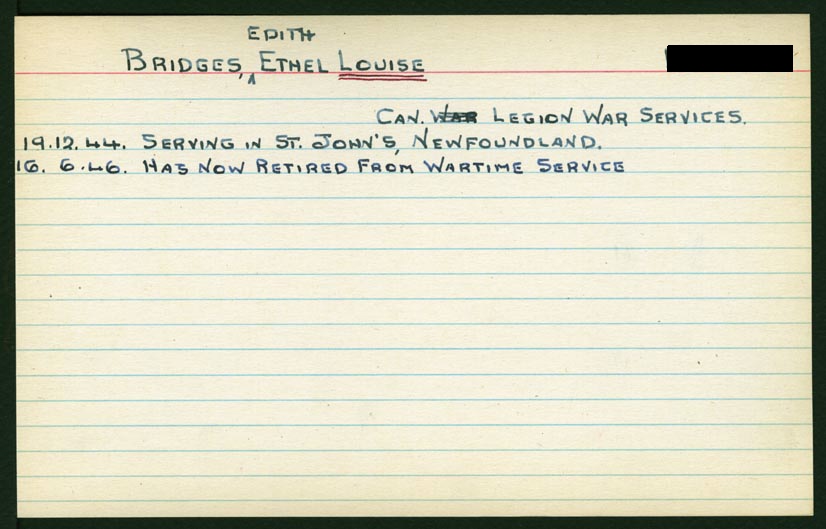 EDITH
BRIDGES, ETHEL LOUISE
CAN. WAR LEGION WAR SERVICES.
19.12.44. SERVING IN ST. JOHN'S, NEWFOUNDLAND.
16. 6.46. HAS NOW RETIRED FROM WARTIME SERVICE